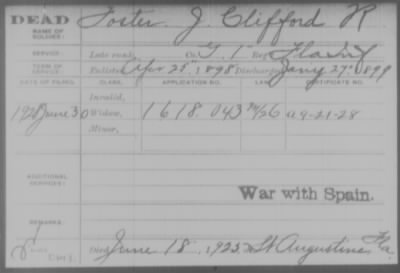 DEAD
NAME OF SOLDIER:
Foster J. Clifford R
SERVICE: Late rank, Co. G, 1" Reg. Fla Inf
TERM OF SERVICE: Enlisted Apr 25", 1898 Discharged Jany 27", 1899
DATE OF FILING. CLASS. APPLICATION NO. LAW. CERTIFICATE NO.
Invalid,
1928 June 30 Widow, 1618.043 a 9-21-28
Minor,
ADDITIONAL SERVICES:
War with Spain.
REMARKS:
Died June 18, 1925 St Augustine, Fla